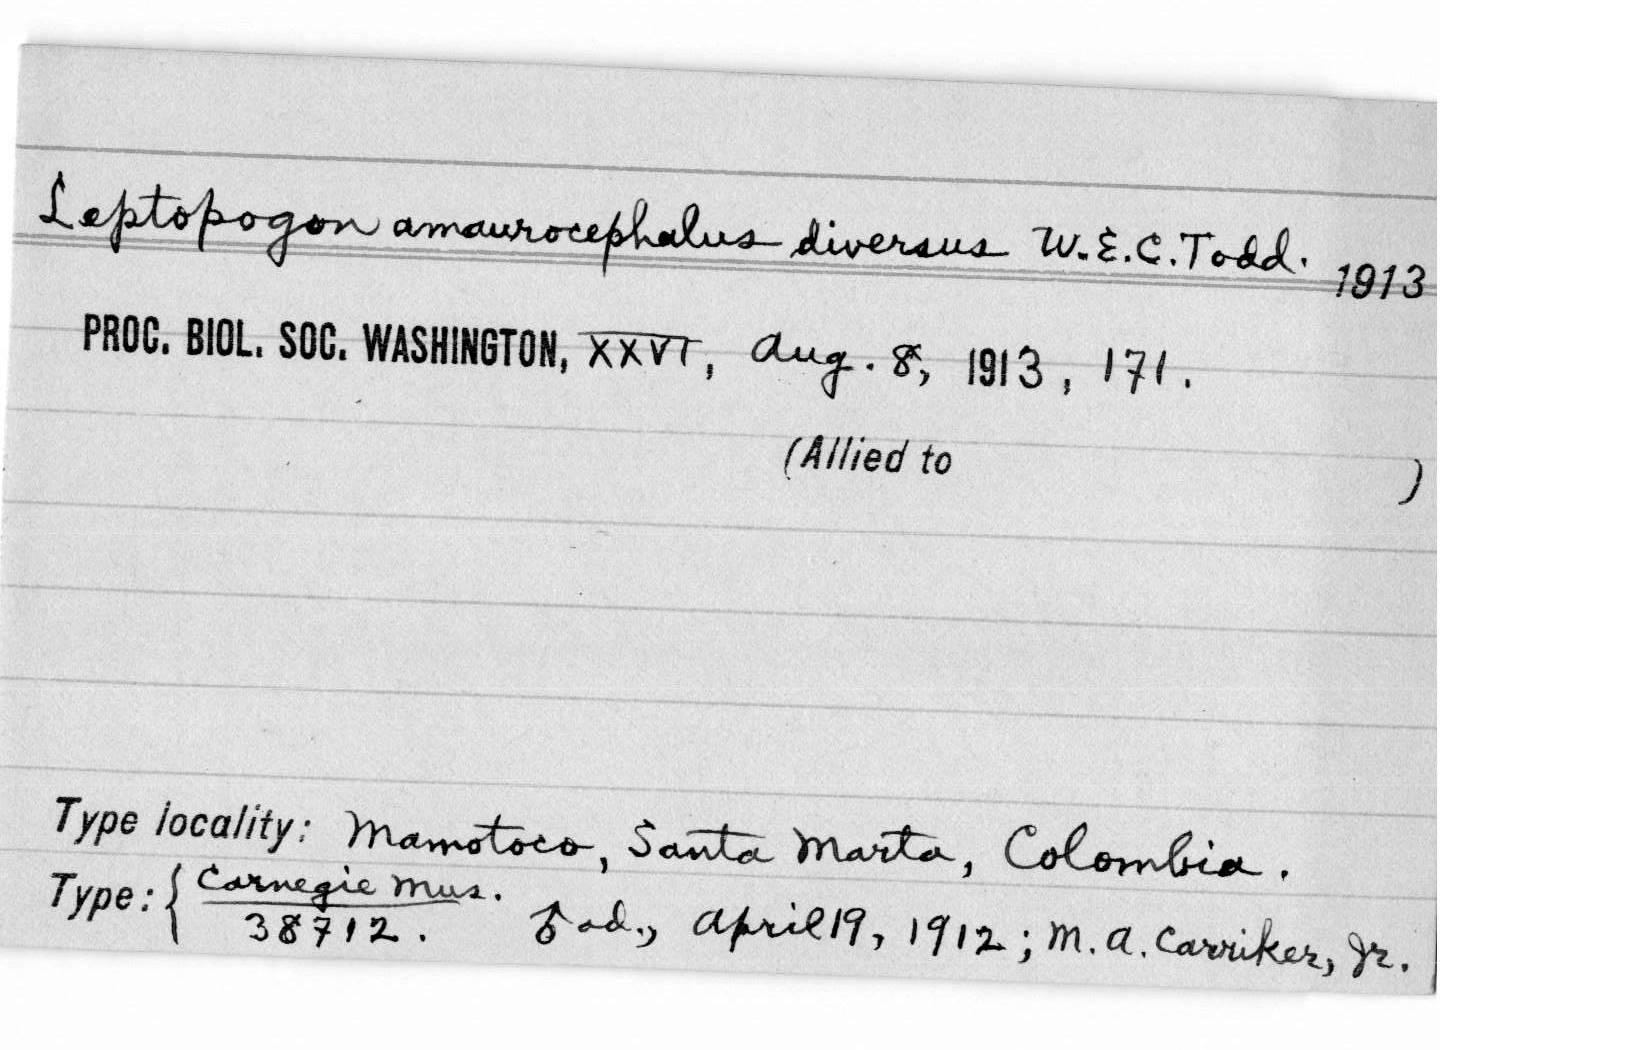 Leptopogon amaurocephalus diversus W.E.C. Todd. 1913
PROC. BIOL. SOC. WASHINGTON, XXVI, Aug. 8, 1913, 171.
(Allied to )
Type locality: Mamotoco, Santa Marta, Colombia.
Type: { Carnegie Mus.
38712. ♂ ad., April 19, 1912; M. A. Carriker, Jr.